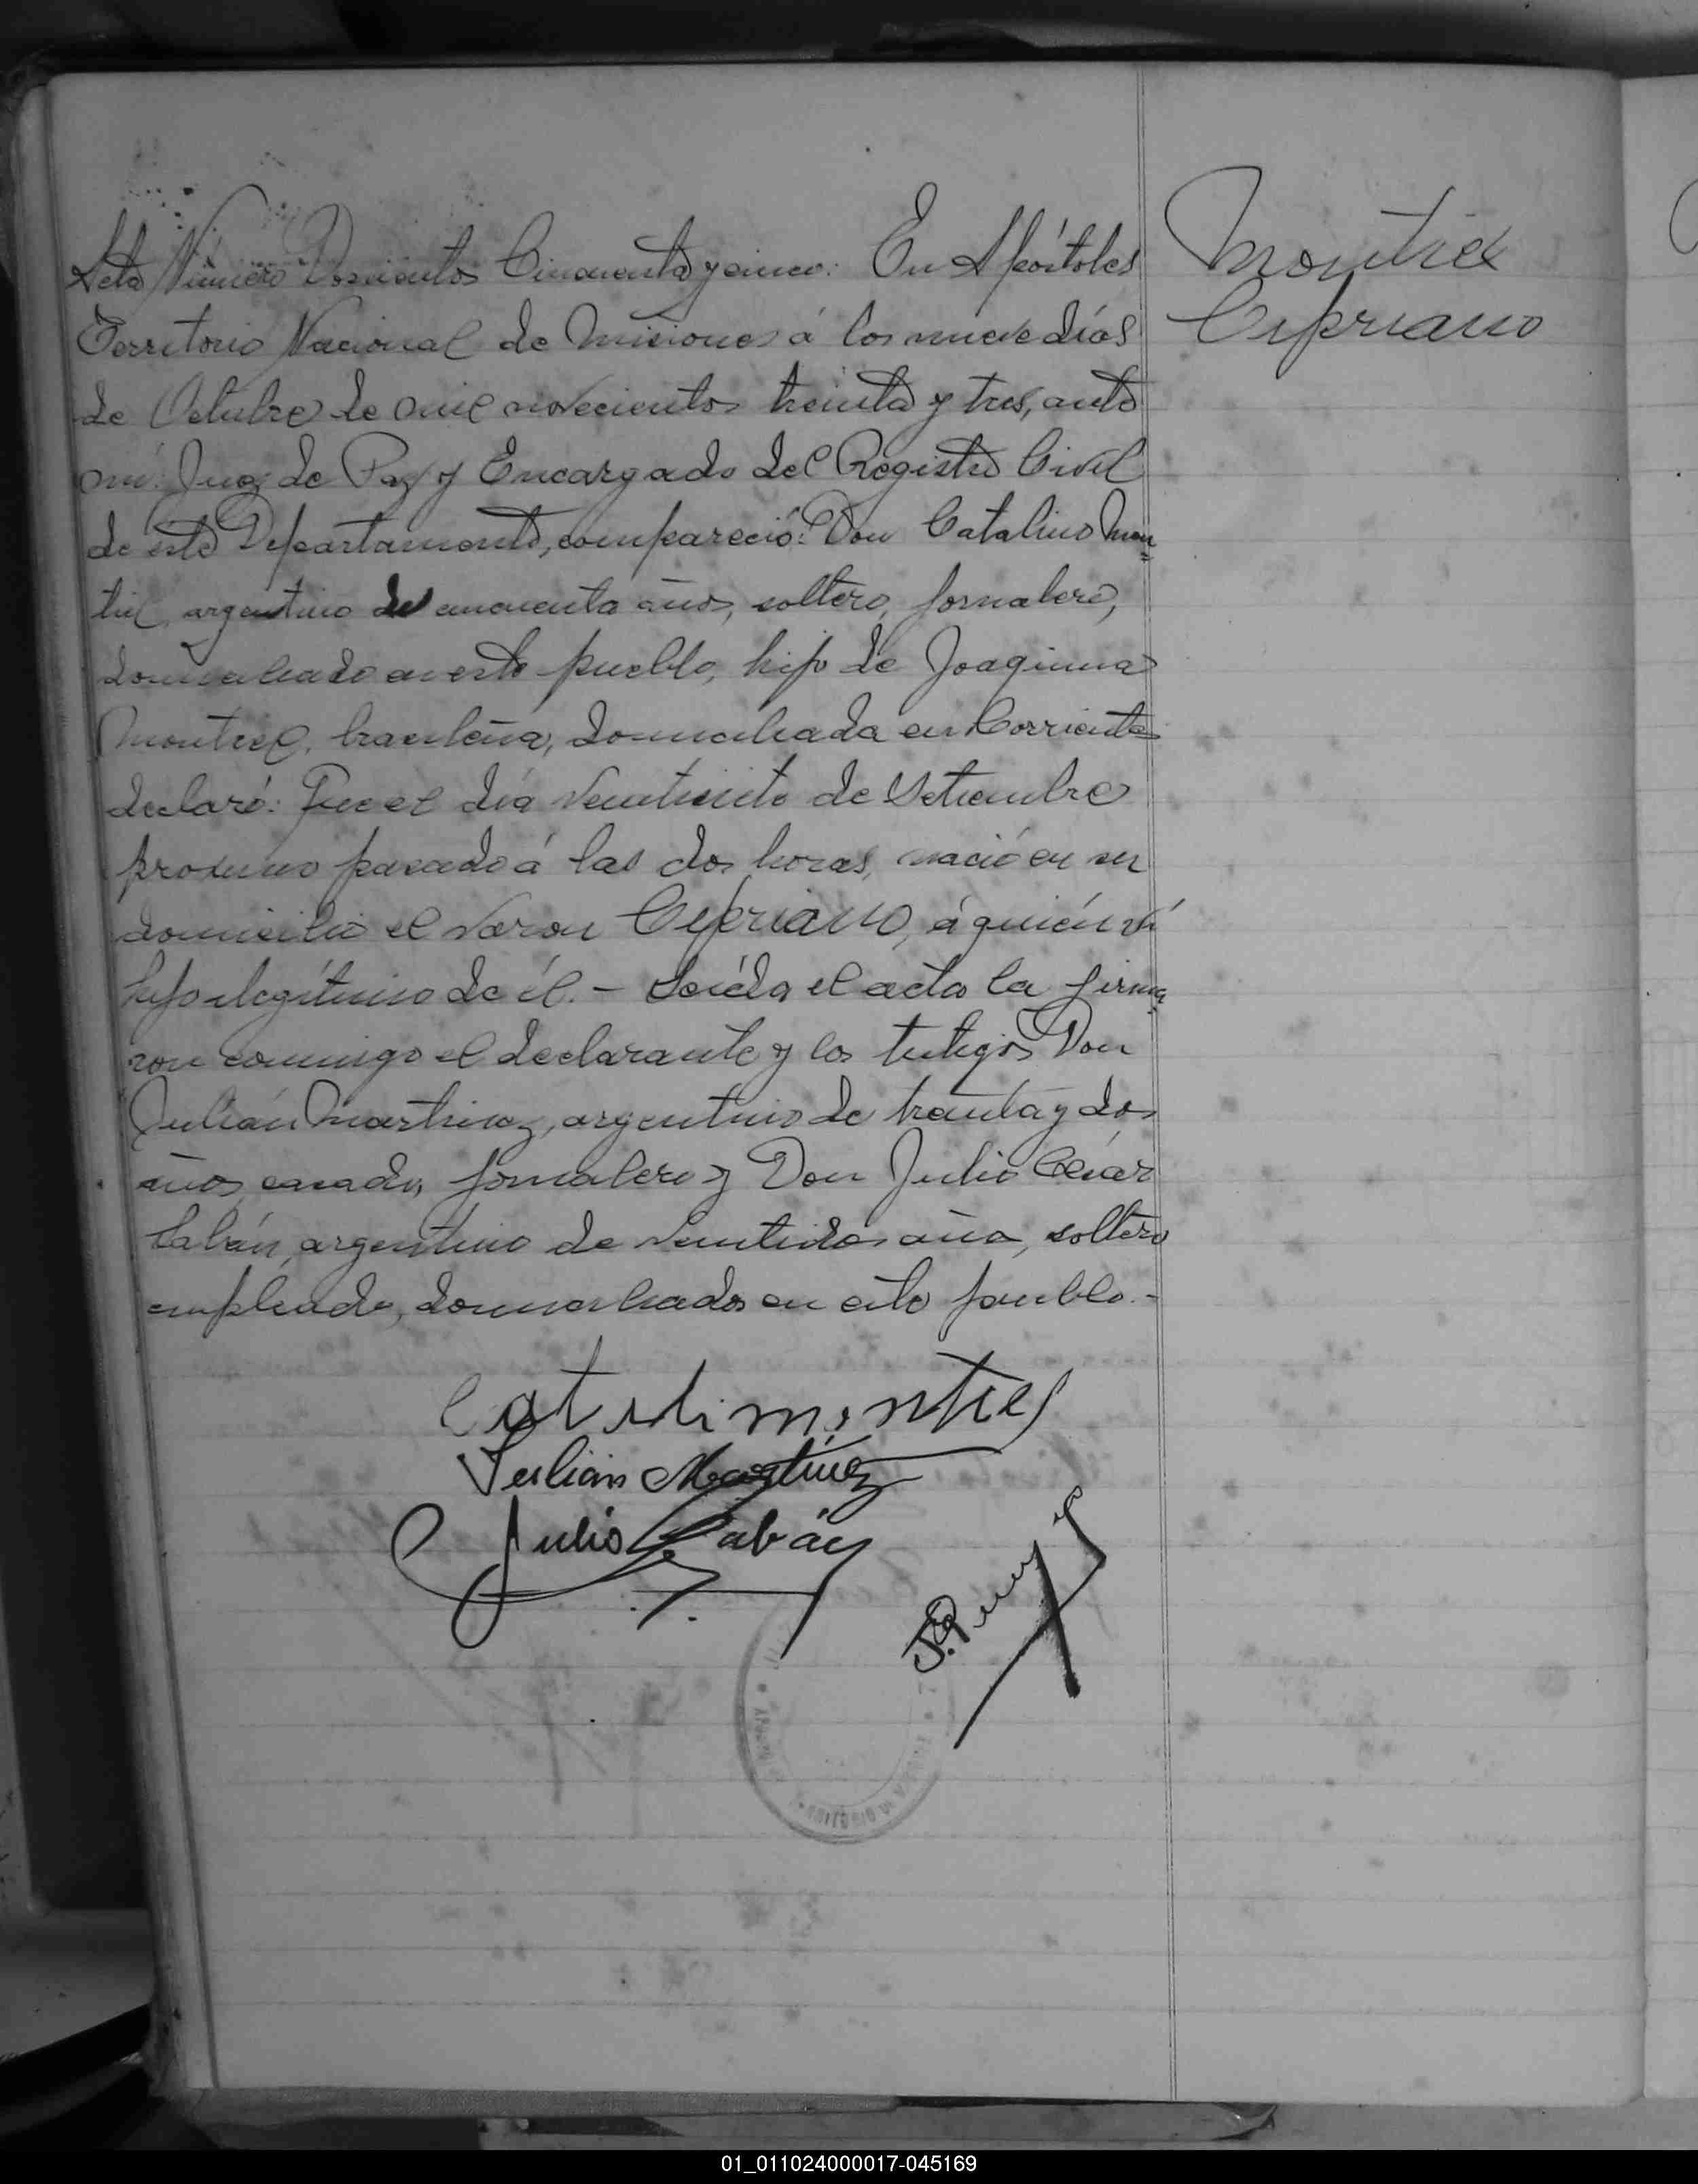 Acta Número Doscientos Cincuenta y cinco: En Apóstoles
Territorio Nacional de Misiones á los nueve días
de Octubre de mil novecientos treinta y tres, ante
mí: Juez de Paz y Encargado del Registro Civil
de este Departamento, compareció: Don Catalino Mon=
tiel, argentino de cincuenta años, soltero, jornalero,
domiciliado en este pueblo, hijo de Joaquina
Montiel, brasileña, domiciliada en Corrientes
declaró: Que el día veintisiete de Setiembre
proximo pasado á las dos horas, nació en su
domicilio el varon Cipriano, á quién ví
hijo ilegítimo de él. - Leída el acta la firma
ron conmigo el declarante y los testigos Don
Julián Martinez, argentino de treinta y dos
años, casado, jornalero y Don Julio César
Labán, argentino de veintidos años, soltero
empleado, domiciliados en este pueblo.-
Montiel
Cipriano
Montiel
Julian Martinez
Julio Labán
01_011024000017-045169